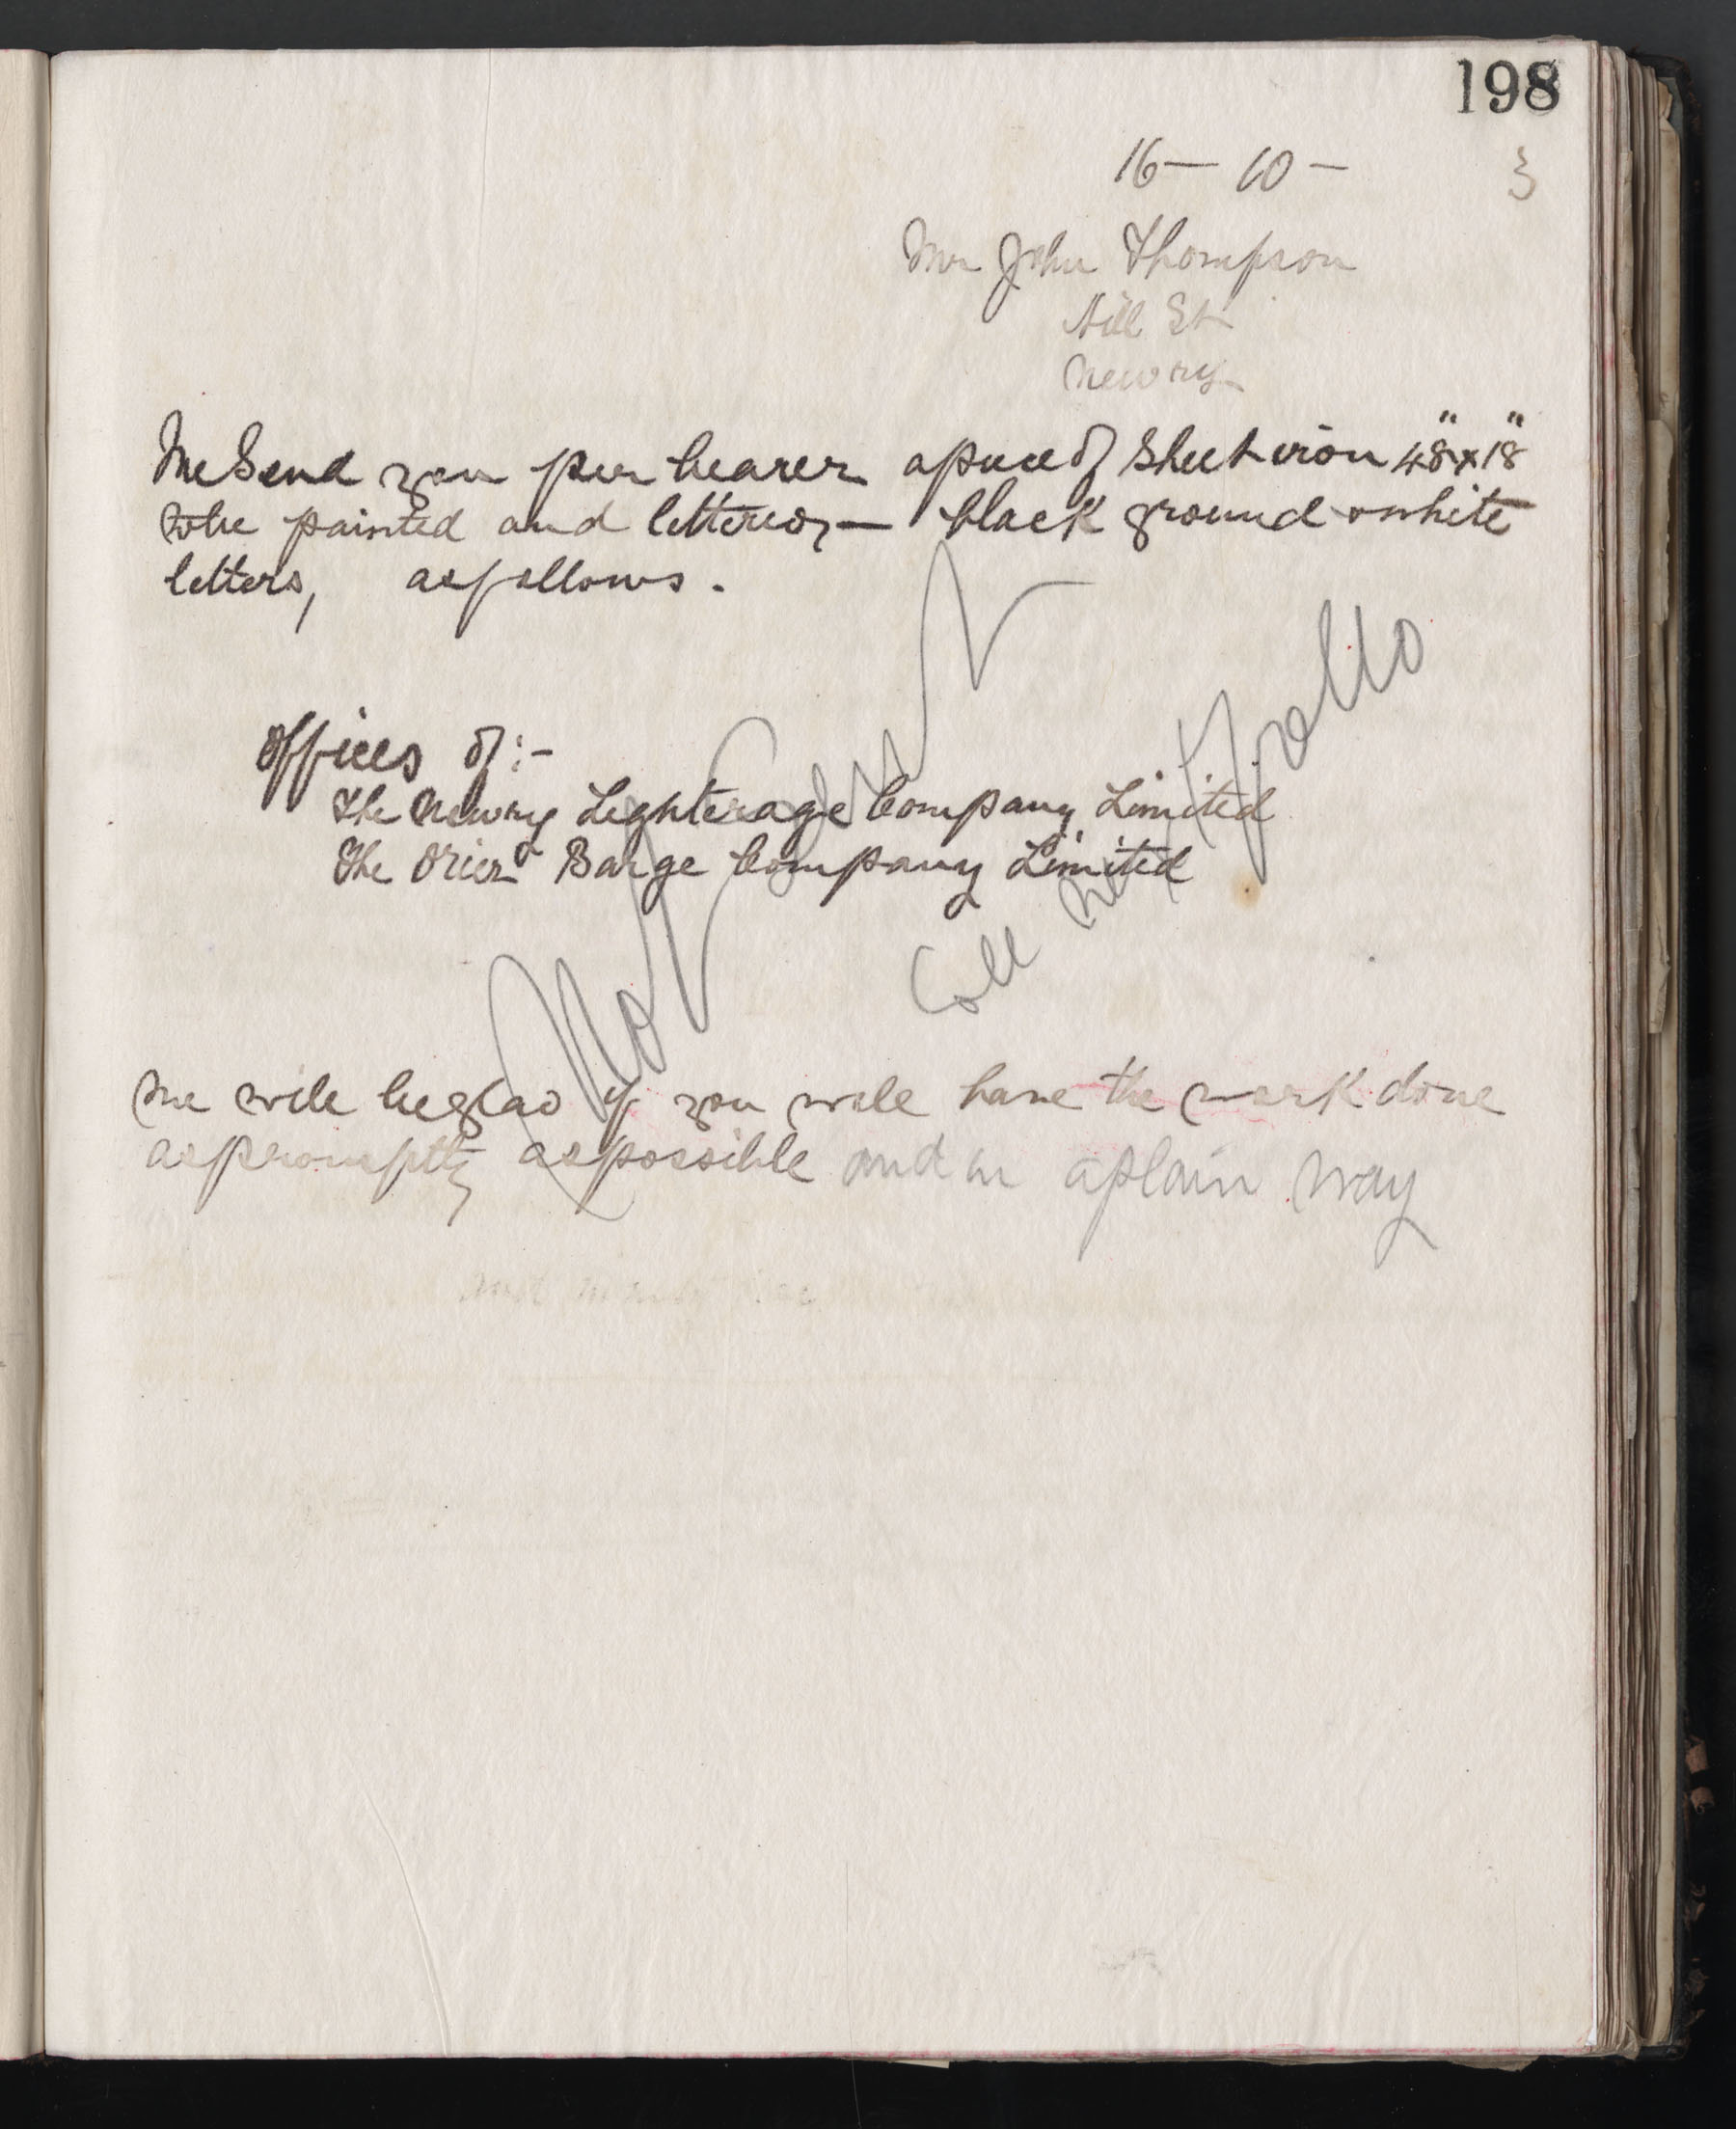 198
16 - 10 - 3
Mr John Thompson
Hill St
Newry
We Send you per bearer a piece of Sheet iron 48" x 18"
to be painted and lettered, — black ground & white
letters, as follows.
Offices of :-
The Newry Lighterage Company Limited
The Orier Barge Company Limited
Not sent
See next folio
We will be glad if you will have the work done
as promptly as possible and in a plain way